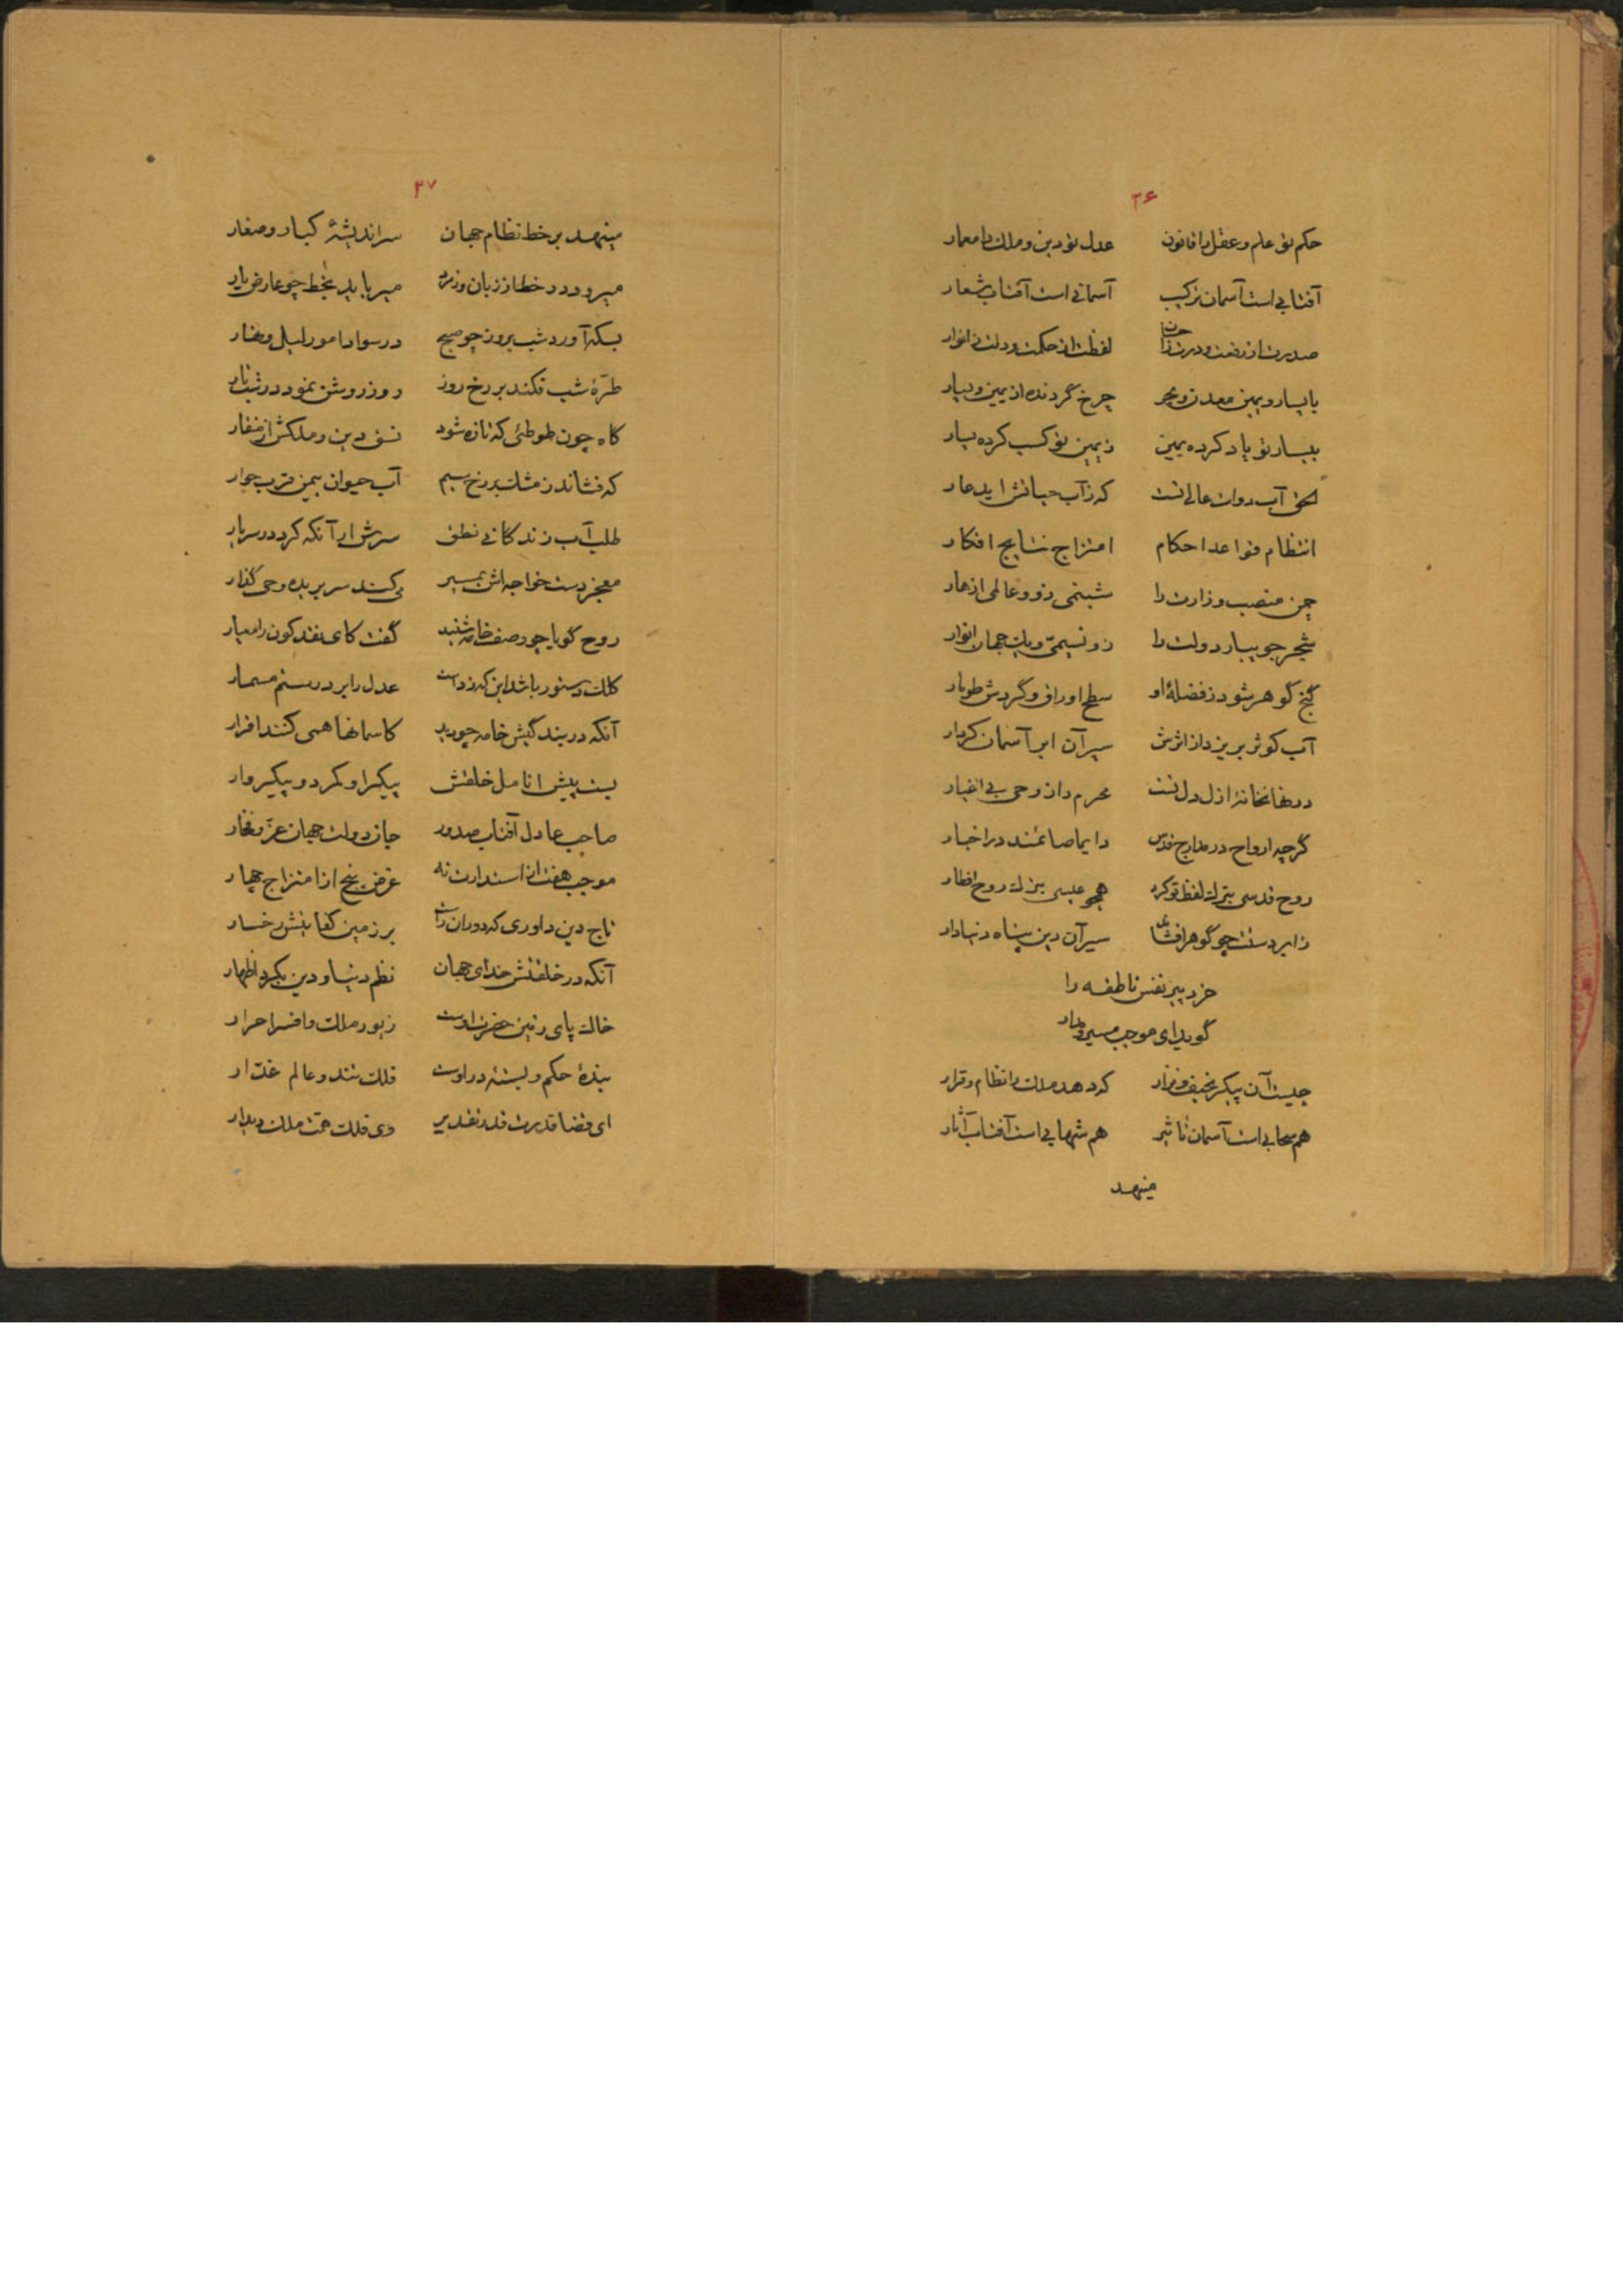 ۳۶
حکم تو علم و عقل را قانون عدل تو دین و ملک را معمار
آفتابی است آسمان ترکیب آسمانی است آفتاب شعار
صدرت از رفعت و درت لفظت از حکمت و دلت ز انوار
با یسار و یمین معدن و بحر چرخ گردنده از یمین و یسار
بیسار تو یاد کرده یمین ز یمین تو کسب کرده یسار
آب دوات عالی تست که ز آب حیاتش اید عار
انتظام قواعد احکام امتزاج نتایج افکار
چمن منصب وزارت را شبنمی زو و عالمی ازهار
شجر جویبار دولت را زو نسیمی و یک جهان انوار
گنج گوهر شود ز فضلهٔ او سطح اوراق و گردش طومار
آب کوثر بریزد از اثرش سیر آن ابر آسمان کردار
در نهانخانهٔ ازل دل تست محرم راز وحی بی اغیار
گرچه ارواح در مدارج قدس دایما صائمند در اخبار
روح قدسی بنزل لفظ تو کرد همچو عیسی بنزل روح افطار
ز ابر دستت چو گوهر افشاند سیر آن دین پناه دنیادار
خرد پیر نفس ناطقه را
گوید ای موجب مسیر و مدار
چیست آن پیکر نحیف و نزار که دهد ملک را نظام و قرار
هم سحابی است آسمان تاثیر هم شهابی است آفتاب آثار
مینهد
۳۷
مینهد بر خط نظام جهان سر اندیشهٔ کبار و صغار
میرود در خط از زبان وزیر میرباید بخط چو عارض یار
بسکه آورد شب بروز چو صبح در سواد امور لیل و نهار
طرّهٔ شب فکند بر رخ روز روز روشن نمود در شب تار
گاه چون طوطئی که تازه شود نسق دین و ملکش از منقار
که فشاند ز مشک بر رخ سیم آب حیوان بیمن قرب جوار
طلب آب زندگانی نطق سرش ار آنکه کرد در سر بار
معجز دست خواجه اش بمسیر کند سر بریده وحی گذار
روح گویا چو وصف خامه شنید گفت کای نقد کون را معیار
کلک دستور باشد این که زدست عدل را بر در ستم مسمار
آنکه در بندگیش خامه چو دید کاسمانها همی کنند اقرار
بست پیش انامل خلقش پیکر او کمر دو پیکروار
صاحب عادل آفتاب صدور جان دولت جهان عزّ و فخار
موجب هفت از استدارت نه غرض پنج از امتزاج چهار
تاج دین داوری که دوران راست بر زمین کفایتش رخسار
آنکه در خلقتش خدای جهان نظم دنیا و دین بکرد اظهار
خاک پای زمین حضرت اوست زیور ملک و افسر احرار
بندهٔ حکم و بستهٔ در اوست فلک تند و عالم غدّار
ای قضا قدرت قدر تقدیر وی فلک همت ملک دیدار